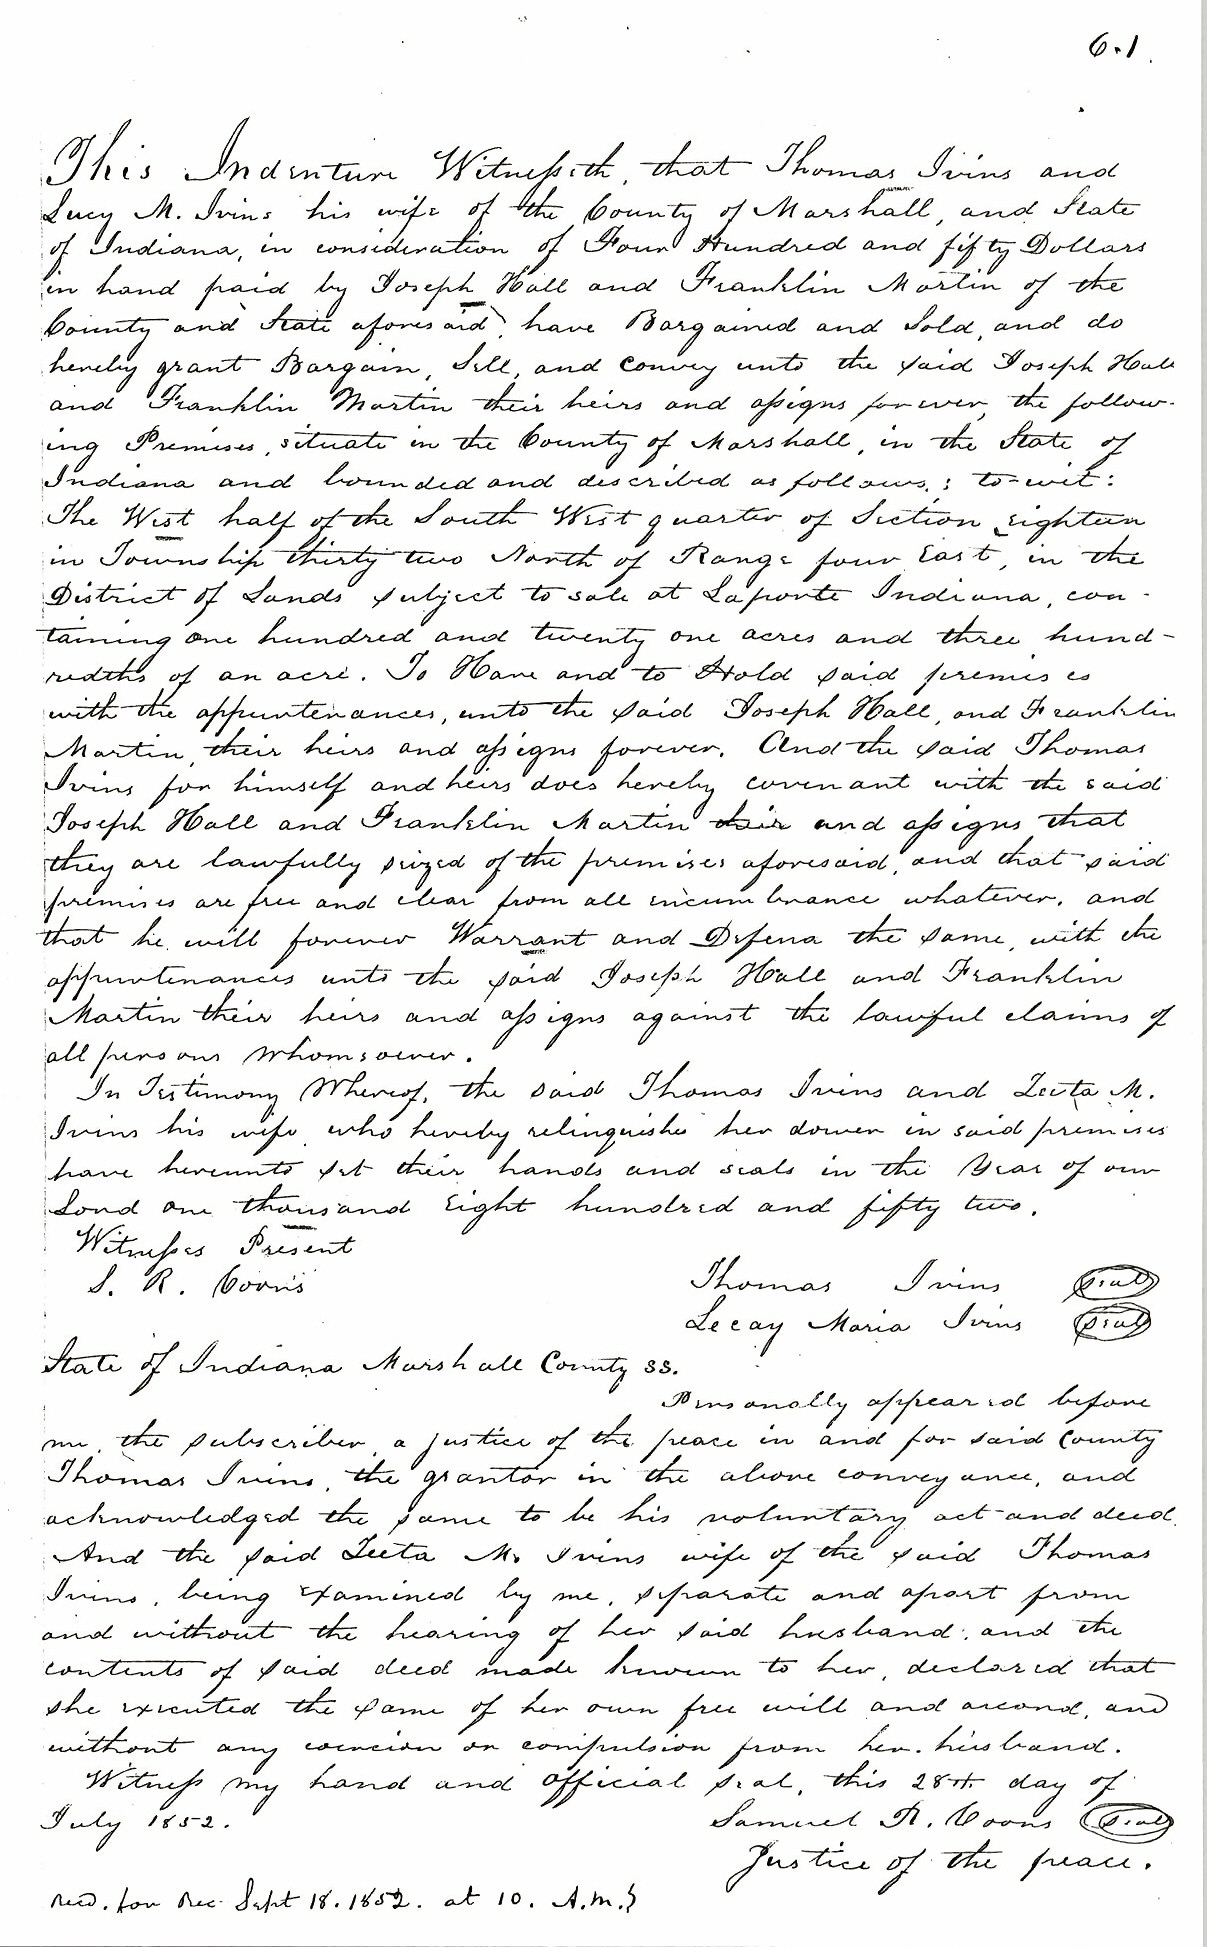 6.1
This Indenture Witnesseth, that Thomas Ivins and
Lucy M. Ivins his wife of the County of Marshall, and State
of Indiana, in consideration of Four Hundred and fifty Dollars
in hand paid by Joseph Hall and Franklin Martin of the
County and State aforesaid, have Bargained and Sold, and do
hereby grant Bargain, Sell, and convey unto the said Joseph Hall
and Franklin Martin their heirs and assigns forever, the follow-
ing Premises, situate in the County of Marshall, in the State of
Indiana and bounded and described as follows; to-wit:
The West half of the South West quarter of Section Eighteen
in Township thirty two North of Range four East, in the
District of Lands subject to sale at Laporte Indiana, con-
taining one hundred and twenty one acres and three hund-
redths of an acre. To Have and to Hold said premises
with the appurtenances, unto the said Joseph Hall, and Franklin
Martin, their heirs and assigns forever. And the said Thomas
Ivins for himself and heirs does hereby covenant with the said
Joseph Hall and Franklin Martin their and assigns that
they are lawfully seized of the premises aforesaid, and that said
premises are free and clear from all incumbrance whatever, and
that he will forever Warrant and Defend the same, with the
appurtenances unto the said Joseph Hall and Franklin
Martin their heirs and assigns against the lawful claims of
all persons whomsoever.
In Testimony Whereof, the said Thomas Ivins and Leeta M.
Ivins his wife who hereby relinquishes her dower in said premises
have hereunto set their hands and seals in the Year of our
Lord one thousand Eight hundred and fifty two.
Witnesses Present
S. R. Coons
Thomas Ivins Seal
Lecay Maria Ivins Seal
State of Indiana Marshall County ss.
Personally appeared before
me, the subscriber, a justice of the peace in and for said County
Thomas Ivins, the grantor in the above conveyance, and
acknowledged the same to be his voluntary act and deed.
And the said Leeta M. Ivins wife of the said Thomas
Ivins, being Examined by me, separate and apart from
and without the hearing of her said husband, and the
contents of said deed made known to her, declared that
she executed the same of her own free will and accord, and
without any coercion or compulsion from her husband.
Witness my hand and official seal, this 28th day of
July 1852.
Samuel R. Coons Seal
Justice of the peace.
Recd. for Rec Sept 18. 1852. at 10. A.M.}